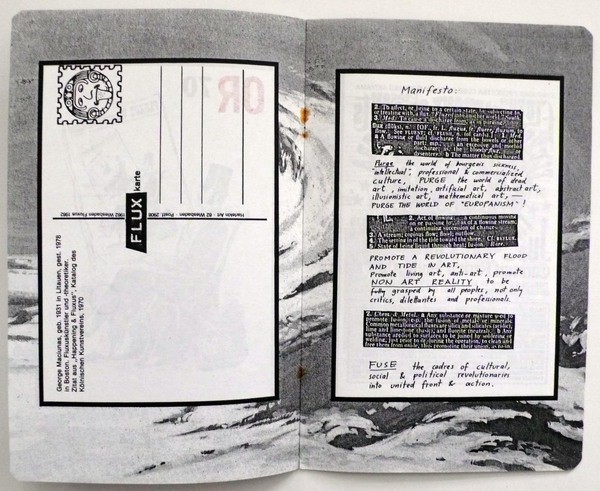 George Maciunas, geb. 1931 in Litauen, gest. 1978
in Boston. Fluxuskünstler und -theoretiker.
Zitat aus „Happening & Fluxus“, Katalog des
Kölnischen Kunstvereins, 1970
FLUX karte
1962 Wiesbaden Fluxus 1982
Harlekin Art
62 Wiesbaden
OR
Manifesto:
2. To affect, or bring to a certain state, by subjecting to,
or treating with, a flux.
3. Med. To cause a discharge from, as in purging.
flux (flŭks), n. [OF., fr. L. fluxus, fr. fluere, fluxum, to
flow. See FLUENT; cf. FLUSH, n. (of cards).] 1. Med.
a A flowing or fluid discharge from the bowels or other
part; esp., an excessive and morbid
discharge; as, the bloody flux, or
dysentery. b The matter thus discharged.
Purge the world of bourgeois sickness,
"intellectual", professional & commercialized
culture, PURGE the world of dead
art, imitation, artificial art, abstract art,
illusionistic art, mathematical art, —
PURGE THE WORLD OF "EUROPANISM"!
2. Act of flowing: a continuous moving
on or passing by, as of a flowing stream;
a continuing succession of changes.
3. A stream; copious flow; flood; outflow.
4. The setting in of the tide toward the shore. Cf. REFLUX.
5. State of being liquid through heat; fusion. Rare.
PROMOTE A REVOLUTIONARY FLOOD
AND TIDE IN ART,
Promote living art, anti-art, promote
NON ART REALITY to be
fully grasped by all peoples, not only
critics, dilettantes and professionals.
7. Chem. & Metal. a Any substance or mixture used to
promote fusion, esp. the fusion of metals or minerals.
Common metallurgical fluxes are silica and silicates (acidic),
lime and limestone (basic), and fluorite (neutral). b Any
substance applied to surfaces to be joined by soldering or
welding, just prior to or during the operation, to clean and
free them from oxide, thus promoting their union, as rosin.
FUSE the cadres of cultural,
social & political revolutionaries
into united front & action.